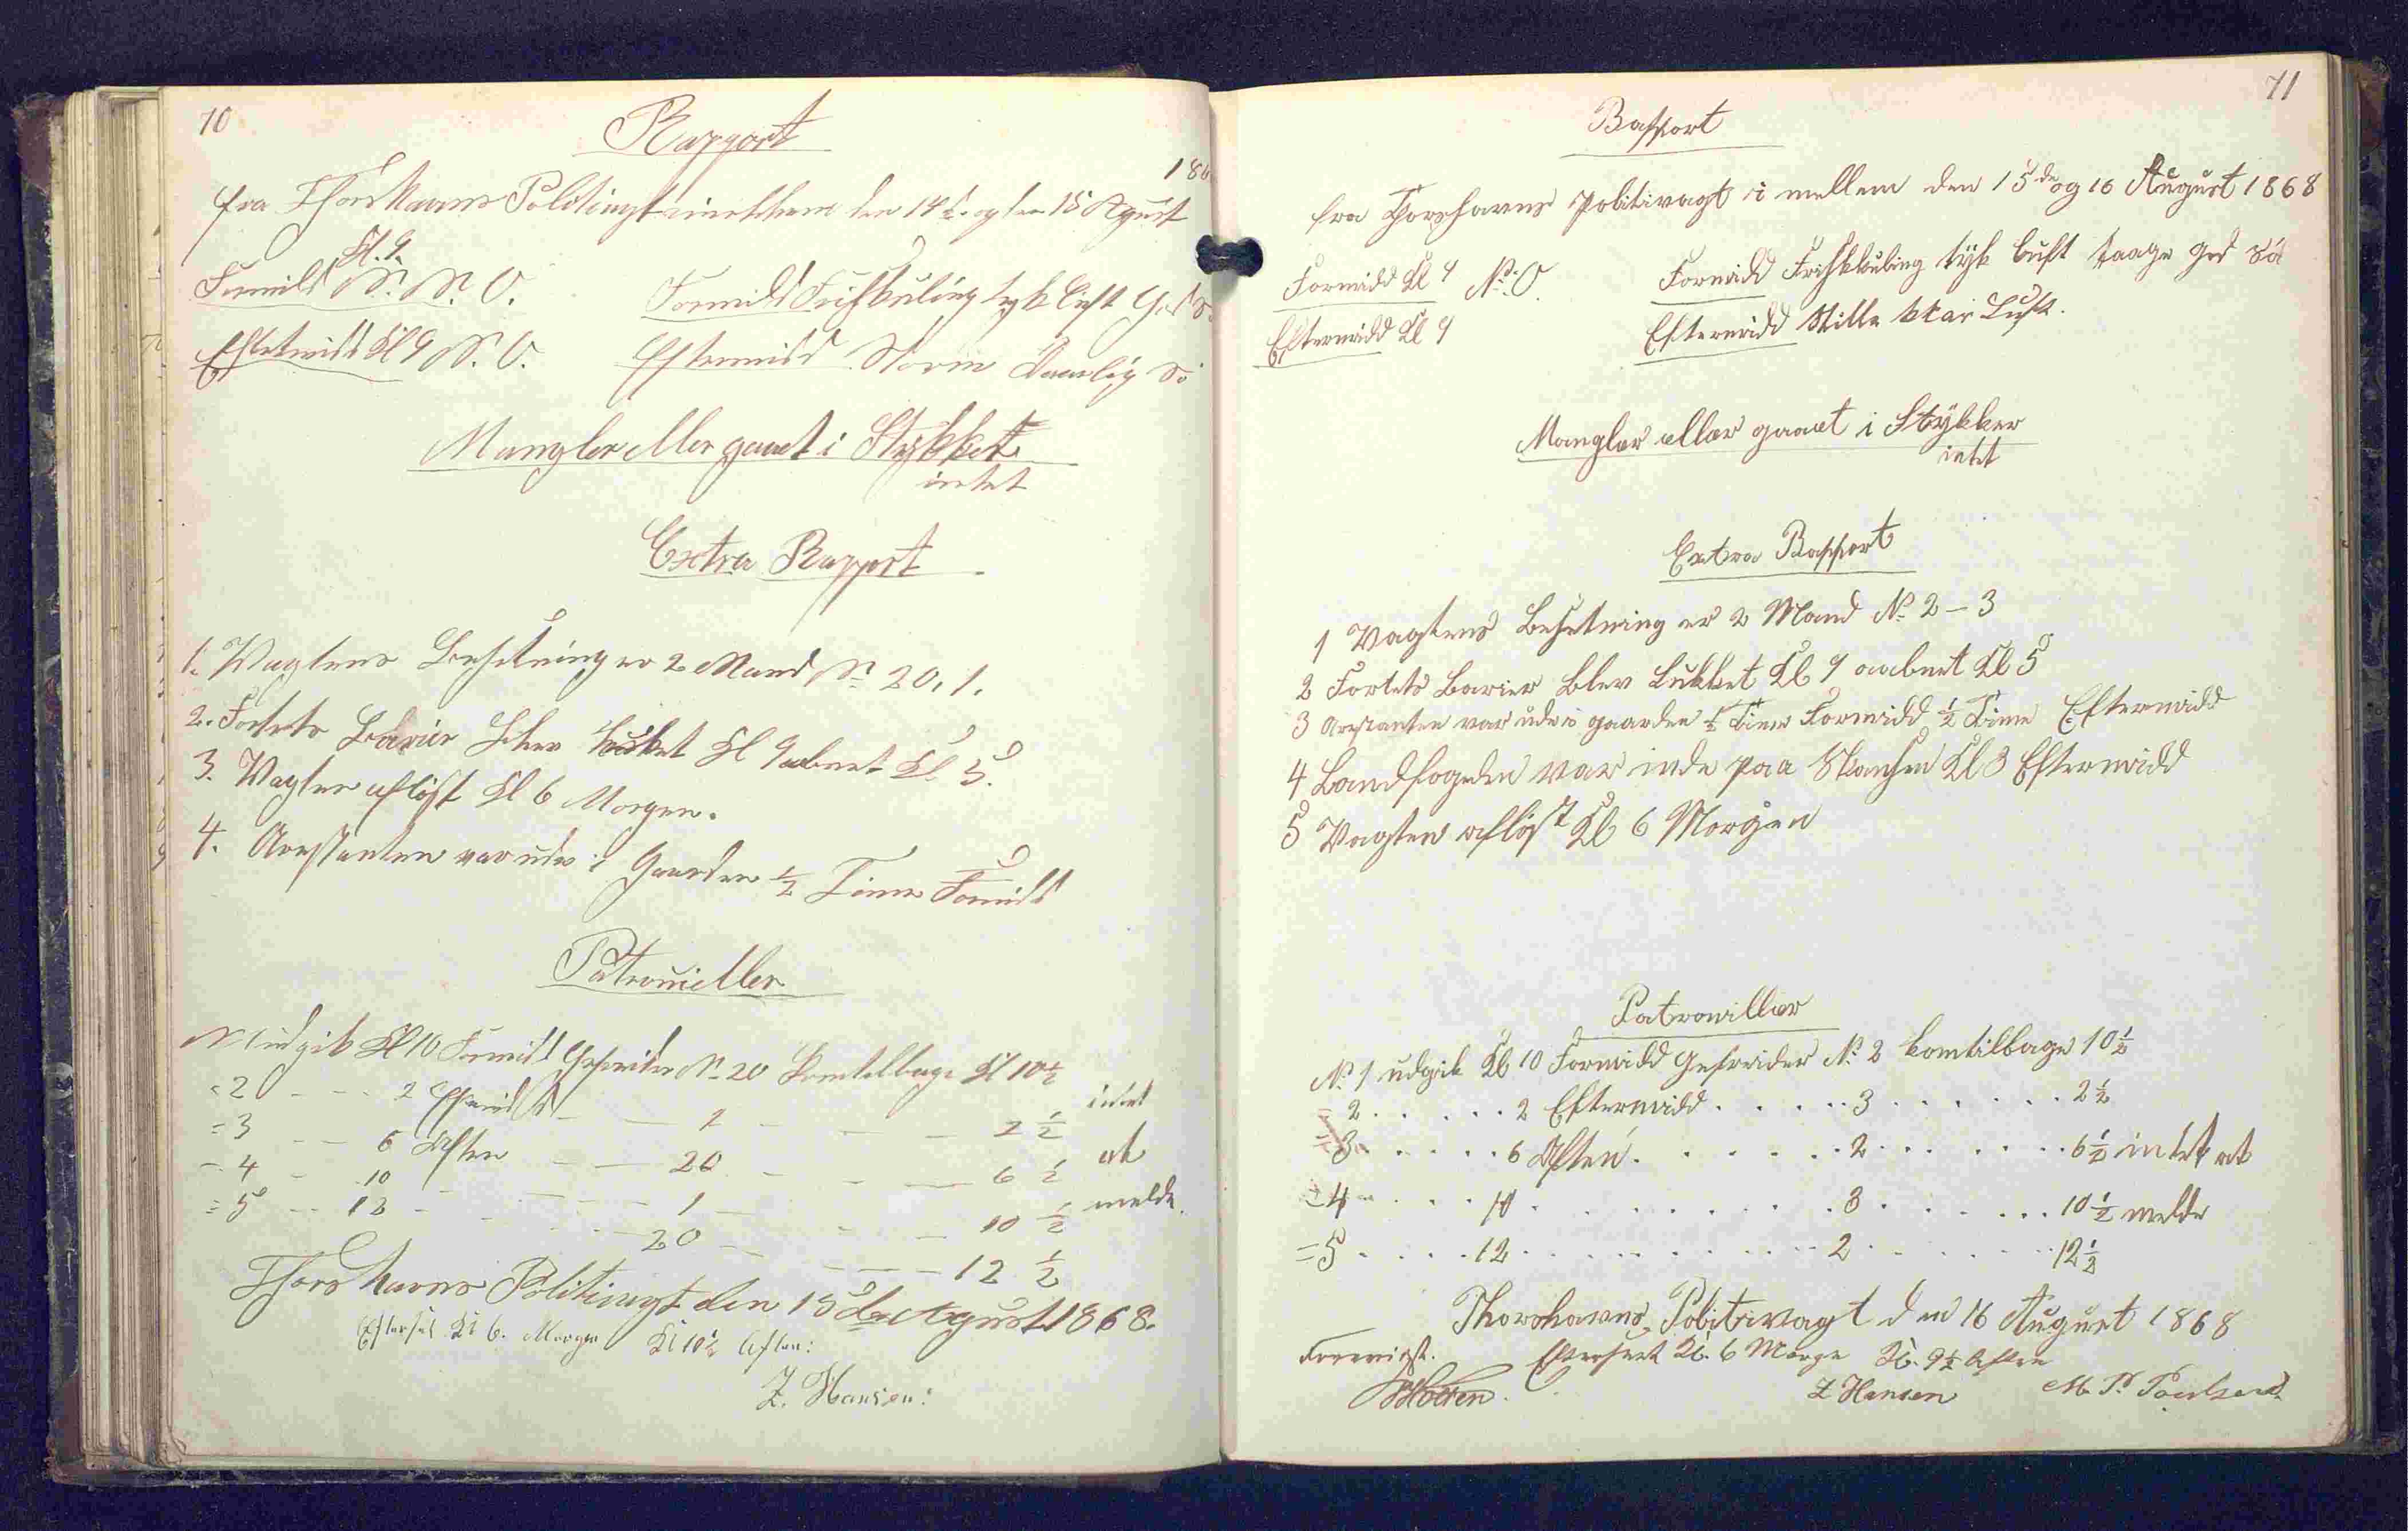 70
Rapport
186
fra Thorshavns Politivagt imellem den 14de og den 15 Agust
Kl. 9
Formidd N. N. O. Formidd Friskkuling tyk luft God Sö
Eftermidd Kl 9 N. O. Eftermidd Storm Daarlig Sö
Mangler eller gaaet i Stykket
intet
Extra Rapport
1. Vagtens Besetning er 2 Mand No 20, 1.
2. Fortets Barier blev lukket Kl 9 aabnet Kl 5.
3. Vagten aflöst Kl 6 Morgen.
4. Arestanten var ude i Gaarden ½ Time Formidd
Patrouiller
No 1 udgik Kl 10 Formidd Gefreider No 20 komtilbage Kl 10½
=2 - - - 2 Eftmidd - - 1 - - - 2½ intet
=3 - - 6 Aften - - 20 - - - 6½ at
=4 - 10 - - - 1 - - - 10½ melde.
=5 - - 12 - - - 20 - - - 12½
Thorshavns Politivagt den 15de Agust 1868.
Efterset Kl 6. Morgen Kl 10½ Aften:
Z. Hansen:
71
Rapport
fra Thorshavns Politivagt i mellem den 15de og 16 August 1868
Formidd Kl 9 N.O. Formidd Friskkuling tyk luft taage god Sö
Eftermidd Kl 9 Eftermidd Stille klar Luft.
Mangler eller gaaet i Stykker
intet
Extra Rapport
1 Vagtens Besetning er 2 Mand No 2 – 3
2 Fortets Barier blev Lukket Kl 9 aabnet Kl 5
3 Arestanten var ude i gaarden ½ Time Formidd ½ Time Eftermidd
4 Landfogeden var inde paa Skansen Kl 3 Eftermidd
5 Vagten aflöst Kl 6 Morgen
Patrouiller
No 1 udgik Kl 10 Formidd Gefreider No 2 komtilbage 10½
=2 . . . . . 2 Eftermidd . . . . . 3 . . . . . . 2½
=3 . . . . . 6 Aften . . . . . . 2 . . . . . . 6½ intet at
=4 . . . . 10 . . . . . . . . 3 . . . . . . 10½ melde
=5 . . . . 12 . . . . . . . . 2 . . . . . . 12½
Thorshavns Politivagt den 16 August 1868
Foreviist. Efterseet Kl. 6 Morge Kl. 9½ Aften
Z Hansen M. P. Poulsen